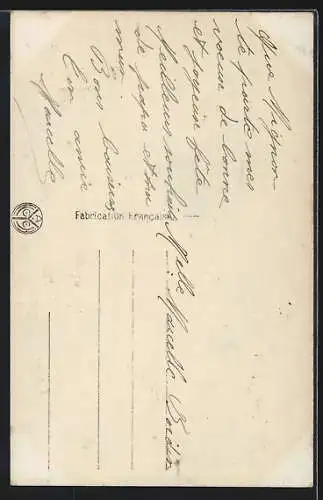 Que Mignon
te porte mes
voeux de bonne
et joyeuse fête
Meilleurs souhaits
de papa et ma
man.
Bons baisers
Ton amie
Marcelle
Fabrication Française
Melle
Marcelle